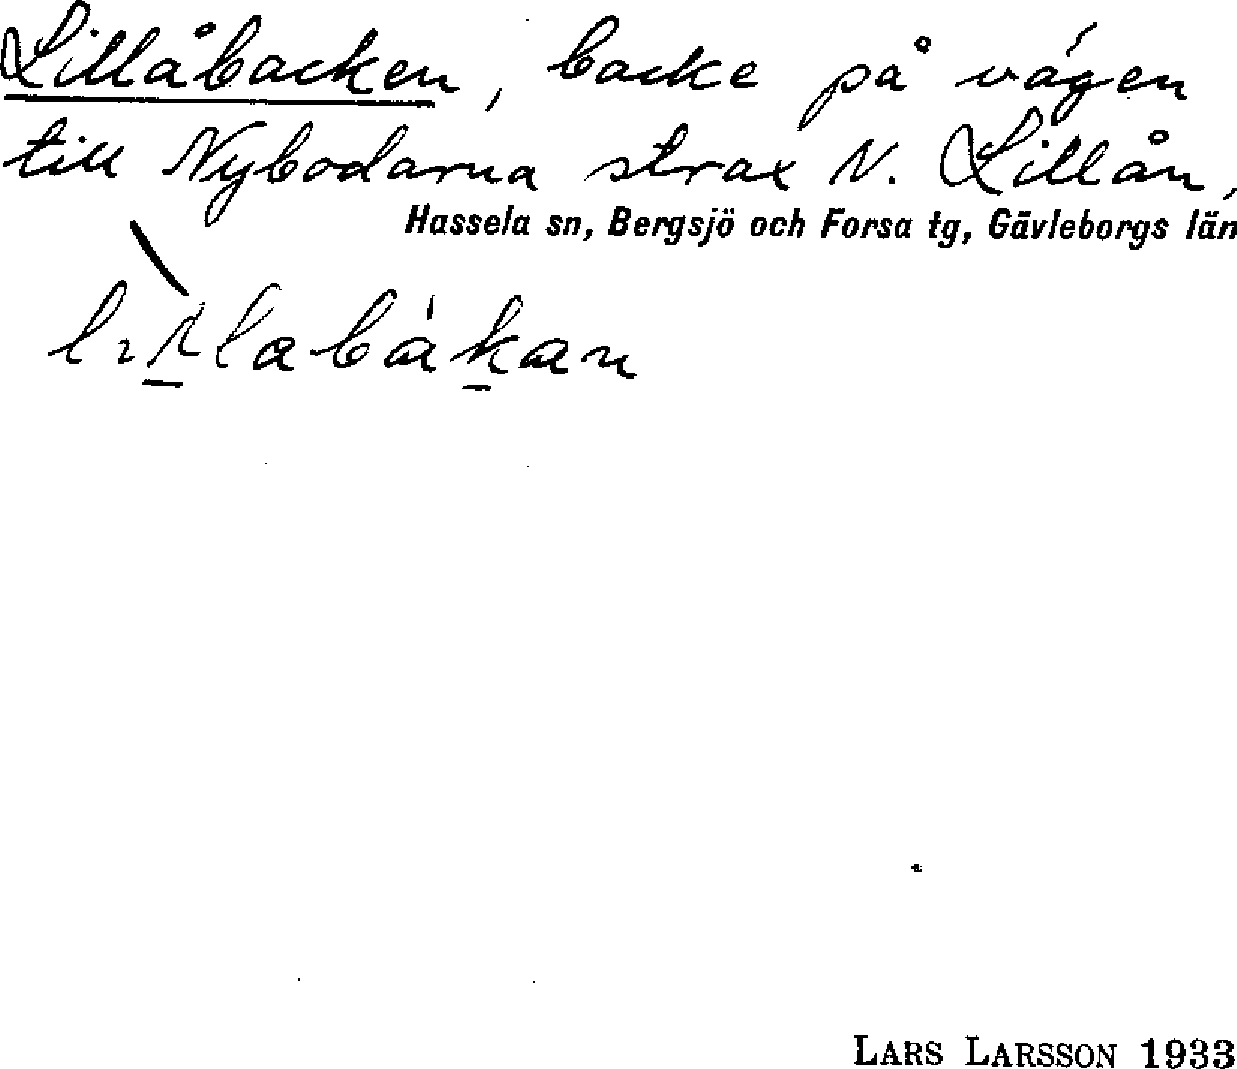 Lillåbacken, backe på vägen
till Nybodarna strax N. Lillån,
Hassela sn, Bergsjö och Forsa tg, Gävleborgs län
LARS LARSSON 1933